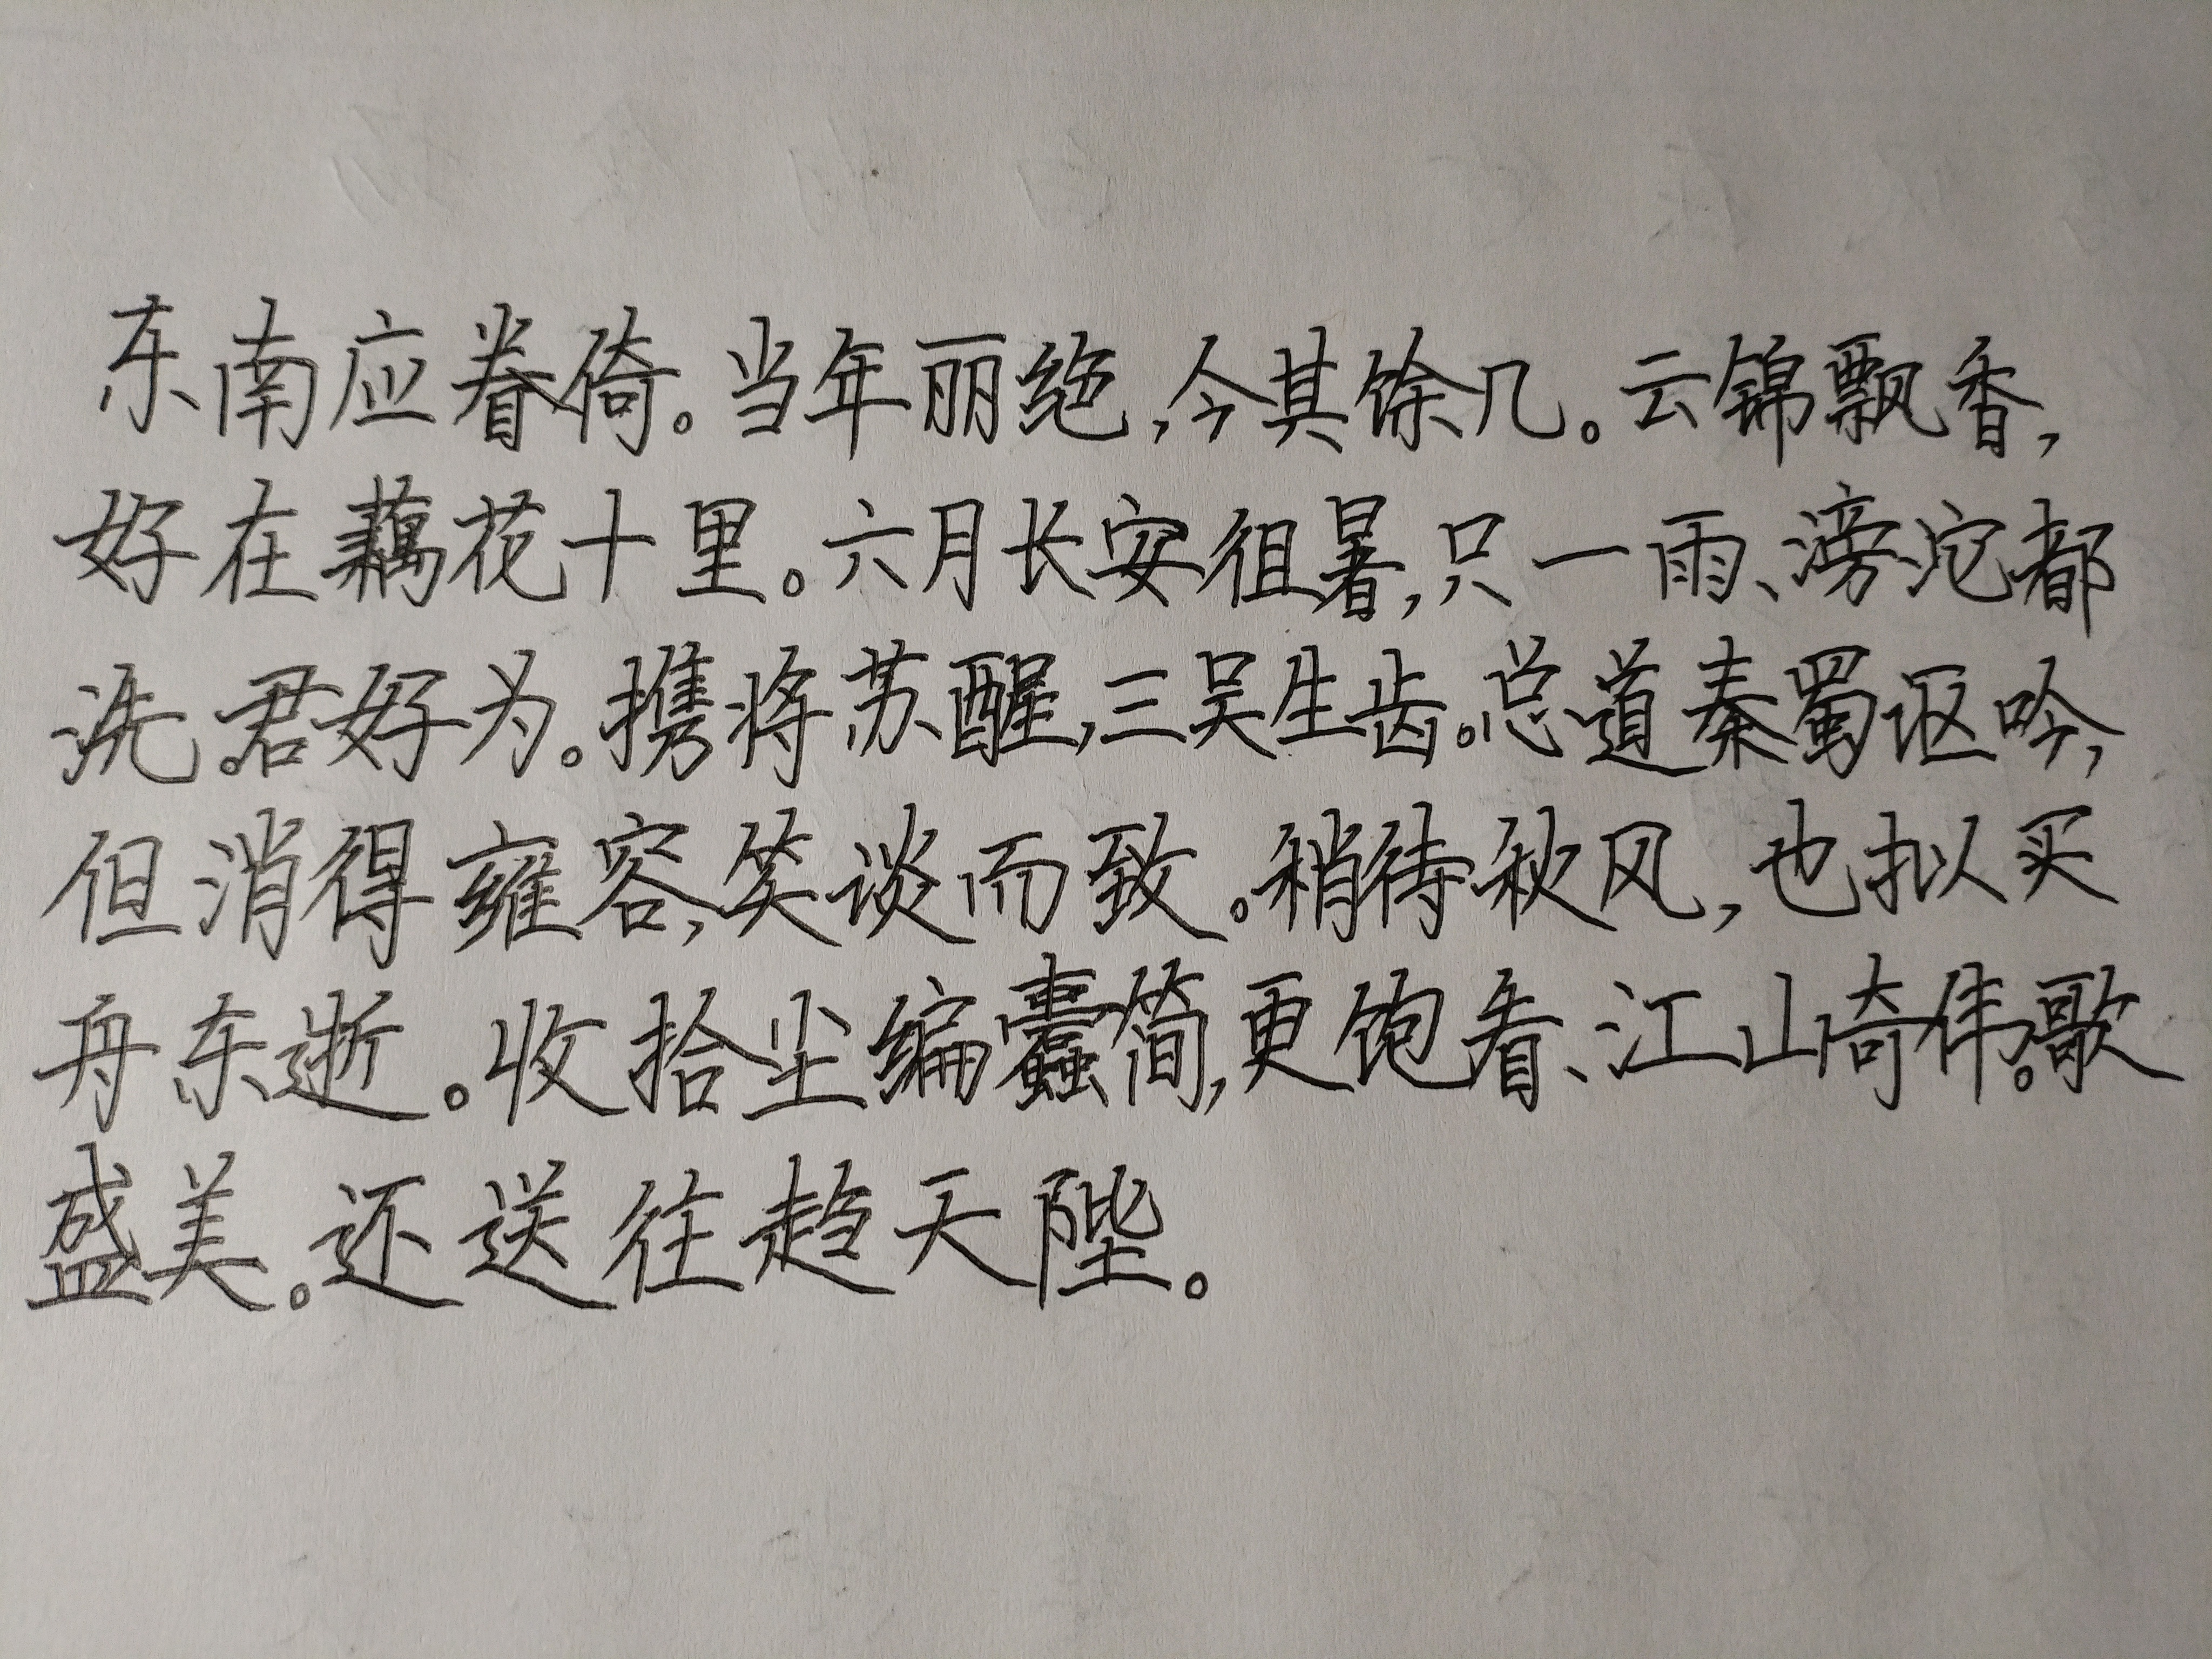 东南应眷倚。当年丽绝,今其馀几。云锦飘香,
好在藕花十里。六月长安徂暑,只一雨、滂沱都
洗。君好为。携将苏醒,三吴生齿。总道秦蜀讴吟,
但消得雍容,笑谈而致。稍待秋风,也拟买
舟东逝。收拾尘编蠹简,更饱看、江山奇伟。歌
盛美。还送往趋天陛。